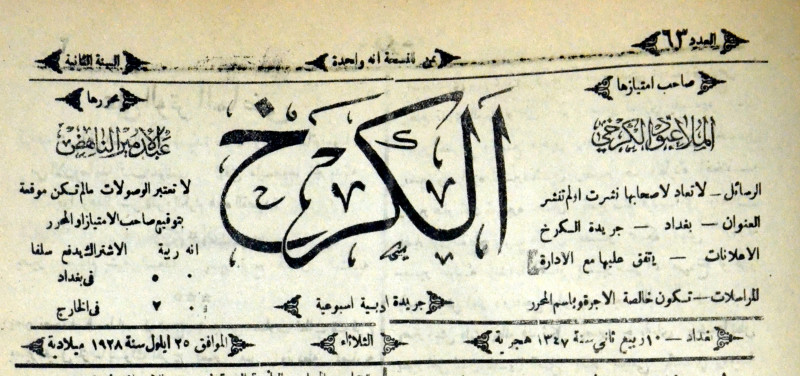 العدد ٦٣
ثمن النسخة آنه واحدة
السنة الثانية
صاحب امتيازها
الملا عبود الكرخي
محررها
عبد الأمير الناهض
الكرخ
جريدة ادبية اسبوعية
الرسائل — لا تعاد لاصحابها نشرت او لم تنشر
العنوان — بغداد — جريدة الكرخ
الاعلانات — يتفق عليها مع الادارة
المراسلات — تسكون خالصة الاجرة وباسم المحرر
لا تعتبر الوصولات مالم تسكن موقعة
بتوقيع صاحب الامتياز او المحرر
انه ربية الاشتراك يدفع سلفا
٠ ٥ فى بغداد
٠ ٧ فى الخارج
بغداد — ١٠ ربيع ثاني سنة ١٣٤٧ هجرية
الثلاثاء
الموافق ٢٥ ايلول سنة ١٩٢٨ ميلادية